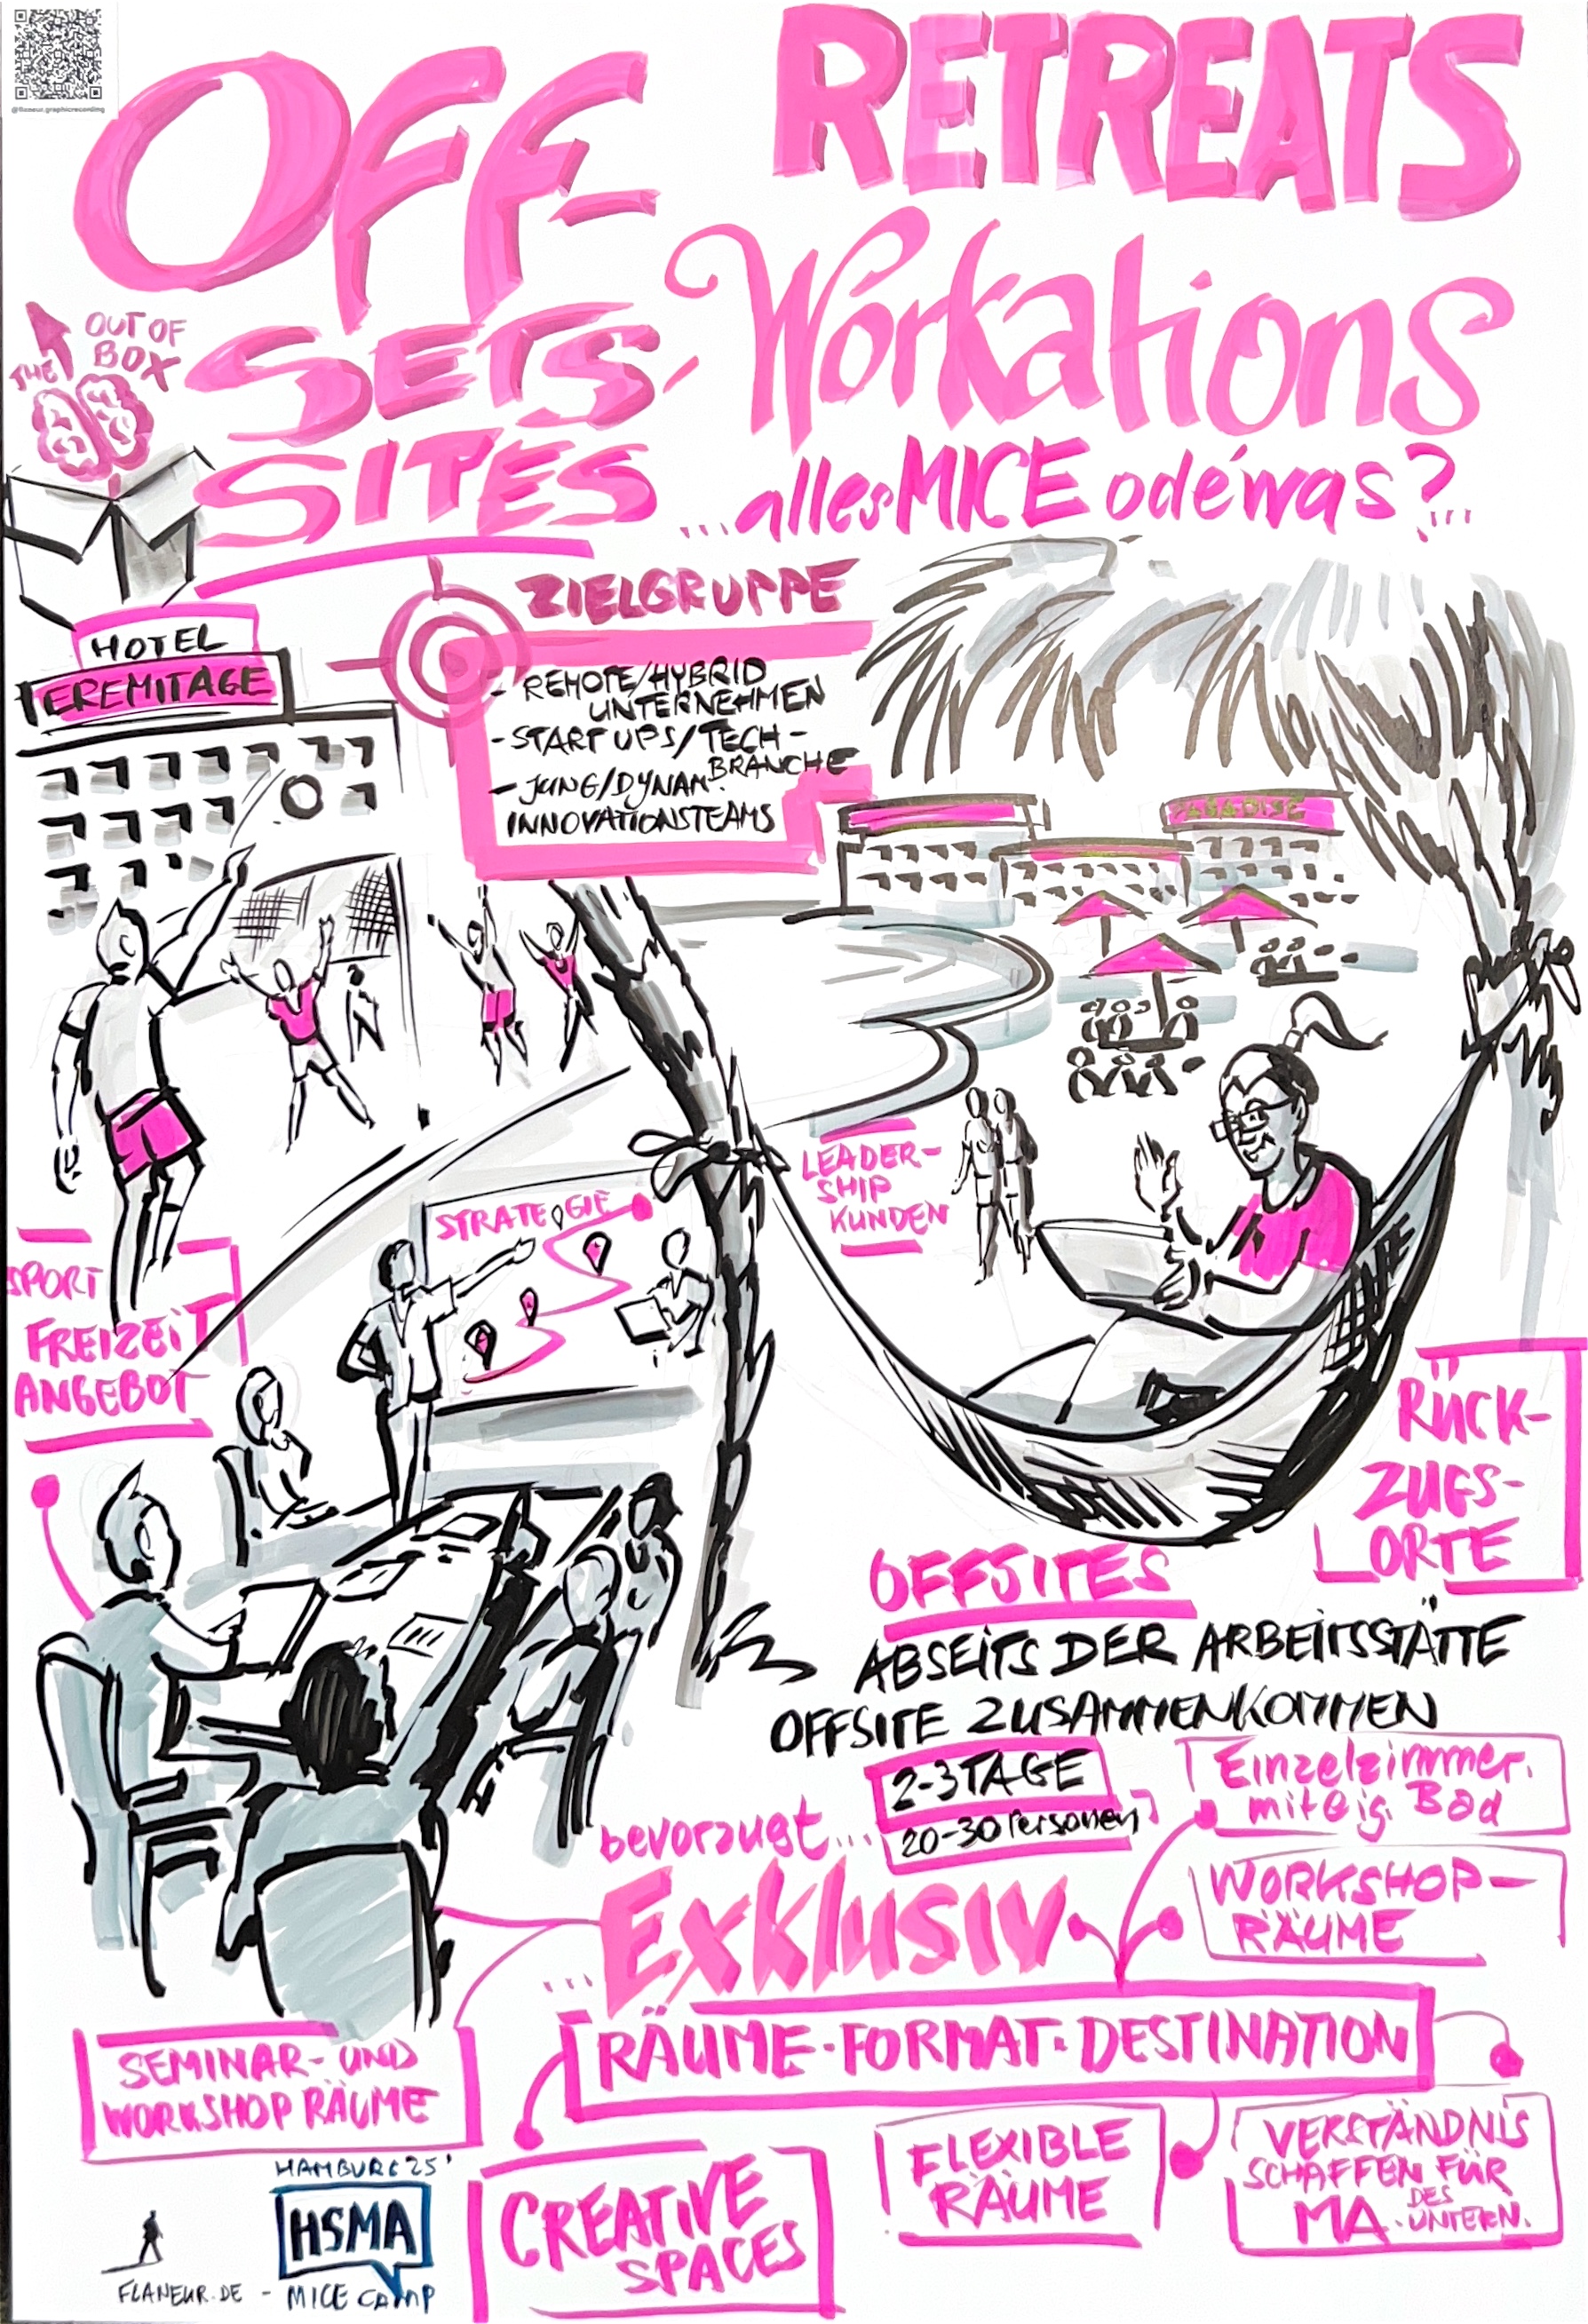 @flaneur.graphicrecording
OFF-
SETS,
SITES
RETREATS
Workations
...alles MICE ode' was?...
OUT OF
THE BOX
HOTEL
EREMITAGE
ZIELGRUPPE
- REMOTE/HYBRID
UNTERNEHMEN
- START UPS/TECH-
BRANCHE
- JUNG/DYNAM.
INNOVATIONSTEAMS
PARADISE
LEADER-
SHIP
KUNDEN
STRATEGIE
SPORT
FREIZEIT
ANGEBOT
RÜCK-
ZUGS-
ORTE
OFFSITES
ABSEITS DER ARBEITSSTÄTTE
OFFSITE ZUSAMMENKOMMEN
2-3 TAGE
20-30 Personen
bevorzugt...
...EXKlusiv
Einzelzimmer.
mit eig. Bad
WORKSHOP-
RÄUME
RÄUME · FORMAT · DESTINATION
SEMINAR- UND
WORKSHOP RÄUME
CREATIVE
SPACES
FLEXIBLE
RÄUME
VERSTÄNDNIS
SCHAFFEN FÜR
MA. DES
UNTERN.
HAMBURG 25'
HSMA
FLANEUR.DE - MICE CAMP